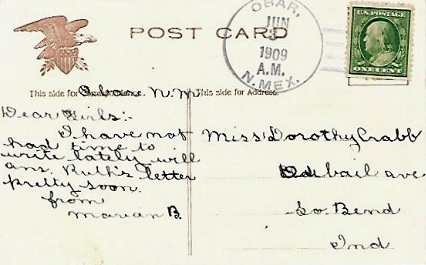 POST CARD
OBAR,
JUN
1909
A.M.
N. MEX.
U.S. POSTAGE
ONE CENT
This side for
This side for Address.
Obar N.M.
Dear Girls:-
I have not
had time to
write lately will
ans. Ruth's letter
pretty soon.
from
Marian B.
Miss Dorothy Crabb
Vail ave
So. Bend
Ind.